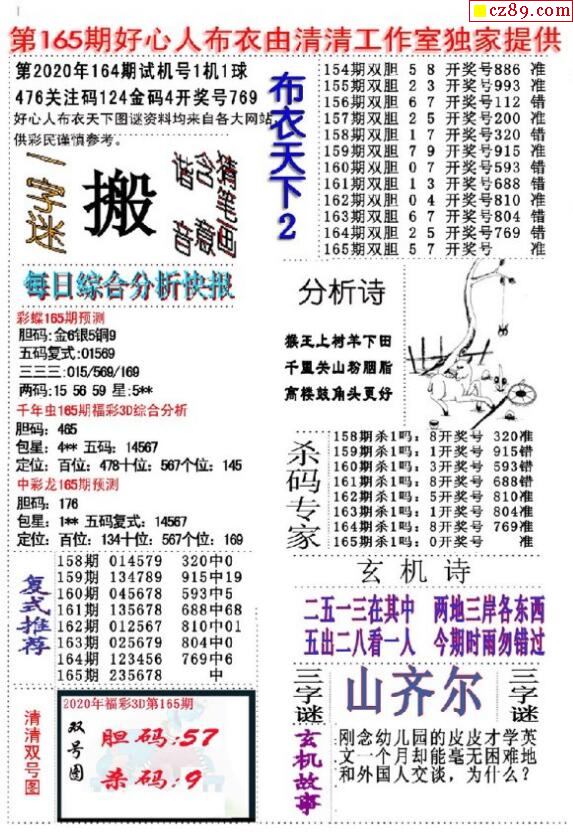 cz89.com
第165期好心人布衣由清清工作室独家提供
第2020年164期试机号1机1球
476关注码124金码4开奖号769
好心人布衣天下图谜资料均来自各大网站,
供彩民谨慎参考。
一字迷
搬
谐音
含意
猜笔画
布衣天下2
154期双胆 5 8 开奖号886 准
155期双胆 2 3 开奖号993 准
156期双胆 6 7 开奖号112 错
157期双胆 2 5 开奖号200 准
158期双胆 1 7 开奖号320 错
159期双胆 7 9 开奖号915 准
160期双胆 0 7 开奖号593 错
161期双胆 1 3 开奖号688 错
162期双胆 0 4 开奖号810 准
163期双胆 6 7 开奖号804 错
164期双胆 2 5 开奖号769 错
165期双胆 5 7 开奖号 准
每日综合分析快报
彩蝶165期预测
胆码:金6银5铜9
五码复式:01569
三三三:015/569/169
两码:15 56 59 星:5**
千年虫165期福彩3D综合分析
胆码: 465
包星: 4** 五码: 14567
定位: 百位: 478十位: 567个位: 145
中彩龙165期预测
胆码: 176
包星: 1** 五码复式: 14567
定位: 百位: 134十位: 567个位: 169
分析诗
猴王上树羊下田
千里关山粉胭脂
高楼鼓角头更好
杀码专家
158期杀1吗: 8开奖号 320准
159期杀1吗: 1开奖号 915错
160期杀1吗: 3开奖号 593错
161期杀1吗: 8开奖号 688错
162期杀1吗: 5开奖号 810准
163期杀1吗: 1开奖号 804准
164期杀1吗: 8开奖号 769准
165期杀1吗: 0开奖号 准
复式推荐
158期 014579 320中0
159期 134789 915中19
160期 045678 593中5
161期 135678 688中68
162期 012567 810中01
163期 025679 804中0
164期 123456 769中6
165期 235678 中
玄机诗
二五一三在其中 两地三岸各东西
五出二八看一人 今期时雨勿错过
清清双号图
2020年福彩3D第165期
双号图
胆码:57
杀码:9
三字谜
山齐尔
三字谜
玄机故事
刚念幼儿园的皮皮才学英
文一个月却能毫无困难地
和外国人交谈，为什么?